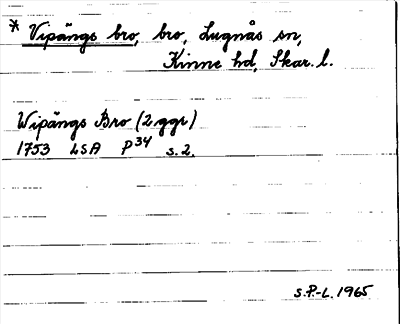 * Vipängs bro, bro, Lugnås sn,
Kinne hd, Skar. l.
Wipängs Bro (2 ggr)
1753 LSA P34 s. 2.
S.P.-L. 1965